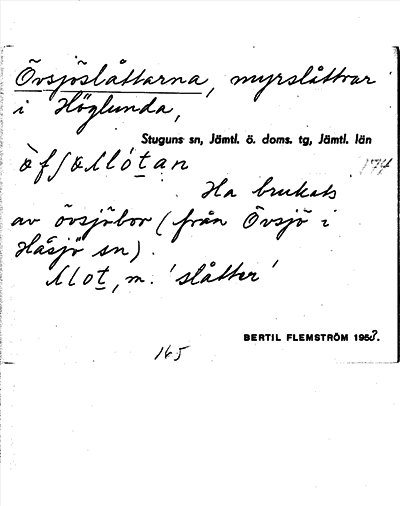 Övsjöslåttarna, myrslåttrar
i Höglunda,
Stuguns sn, Jämtl. ö. doms. tg, Jämtl. län
174
Ha brukats
av övsjöbor (från Övsjö i
Håsjö sn).
m. 'slåtter'
BERTIL FLEMSTRÖM 1953.
165